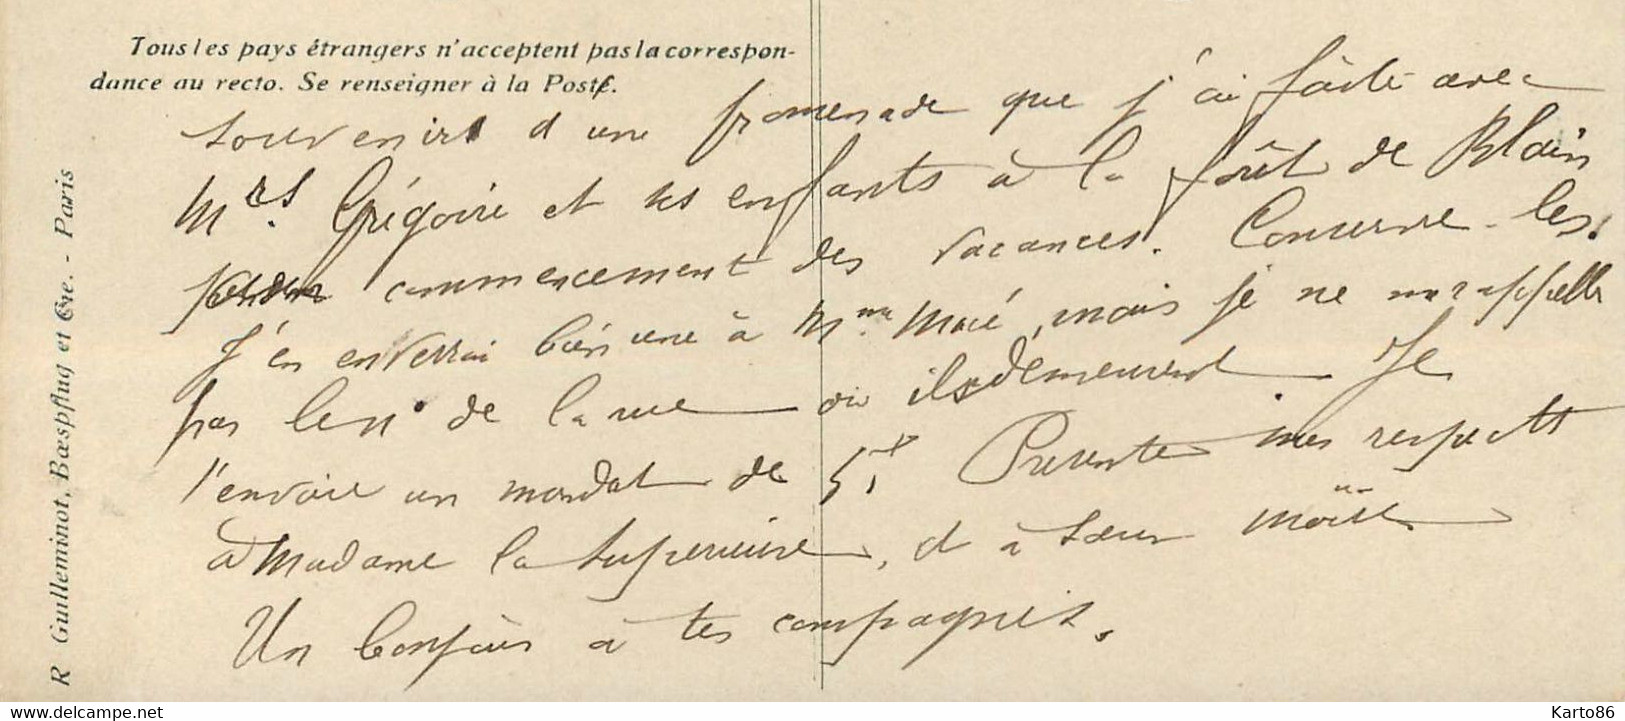 Tous les pays étrangers n'acceptent pas la correspon-
dance au recto. Se renseigner à la Poste.
R Guilleminot, Bœspflug et Cie. - Paris
souvenirs d'une promenade que j'ai faite avec
Mrs. Grégoire et ses enfants à la forêt de Blain
commencement des vacances. Conserve-les.
J'en enverrai bien une à Mme Macé, mais je ne me rappelle
pas le n° de la rue où ils demeurent. Je
t'envoie un mandat de 5f. Présente mes respects
à Madame la Supérieure, et à Sœur Moïse
Un bonjour à tes compagnes.
www.delcampe.net
Karto86